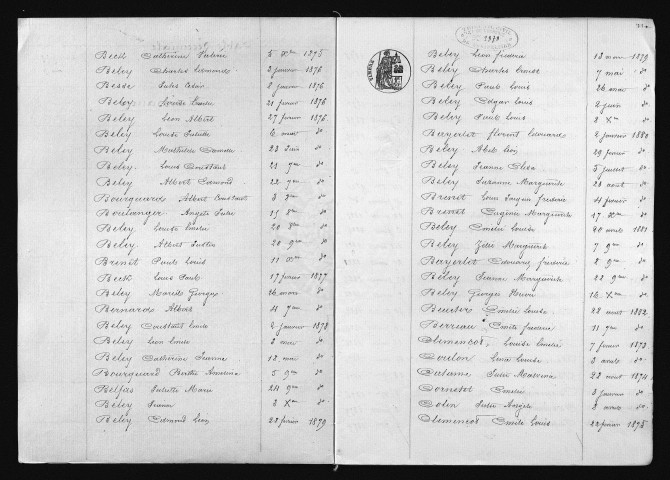 Beck Catherine 5 Xbre 1875
Beley Charles 3 janvier 1876
Besse Jules 2 janvier 1876
Beley Louise 21 février 1876
Beley Léon Albert 27 février 1876
Beley Louise Juliette 6 mai do
Beley Mathilde 23 Juin do
Beley Louis Constant 21 9bre do
Beley Albert Edmond 22 9bre do
Bourquard Albert Constant 3 do
Boulanger Angèle Julie 25 8bre do
Beley Louise Emélie 30 8bre do
Beley Albert 20 9bre do
Brenet Paul Louis 11 Xbre do
Beck Louis Paul 17 février 1877
Beley Marcel Georges 26 mars do
Bernard Albert 4 9bre do
Beley Constant Emile 2 janvier 1878
Beley Léon Emile 2 mai do
Beley Catherine Jeanne 12 mai do
Bourquard Berthe 5 9bre do
Belfus Juliette Marie 24 9bre do
Beley Jeanne 3 Xbre do
Beley Edmond Léon 22 février 1879
1879
Beley Léon Frédéric 13 mars 1879
Beley Charles Ernest 7 mai do
Beley Paul Louis 26 mai do
Beley Edgar Louis 2 juin do
Beley Paul Louis 2 Xbre do
Bayerlet Florent Edouard 2 janvier 1880
Beley Abel Léon 29 février do
Beley Jeanne 5 juillet do
Beley Suzanne Marguerite 23 août do
Brenet Louis Eugène Frédéric 4 février do
Brenet Eugénie Marguerite 17 Xbre do
Beley Emélie Louise 20 avril 1881
Beley Zélie Marguerite 7 9bre do
Bayerlet Edouard Frédéric 8 9bre do
Beley Jeanne Marguerite 22 9bre do
Beley Georges Henri 16 Xbre do
Beucler Emélie Louise 28 août 1882
Berreau Emile Frédéric 11 9bre do
Clemencot Louise Emélie 7 février 1873
Coulon Louise 3 avril do
Catanne Julie 22 août 1874
Cornetet Emélie 3 janvier do
Colin Julie Angèle 3 avril do
Clemencot Emile Louis 22 février 1875